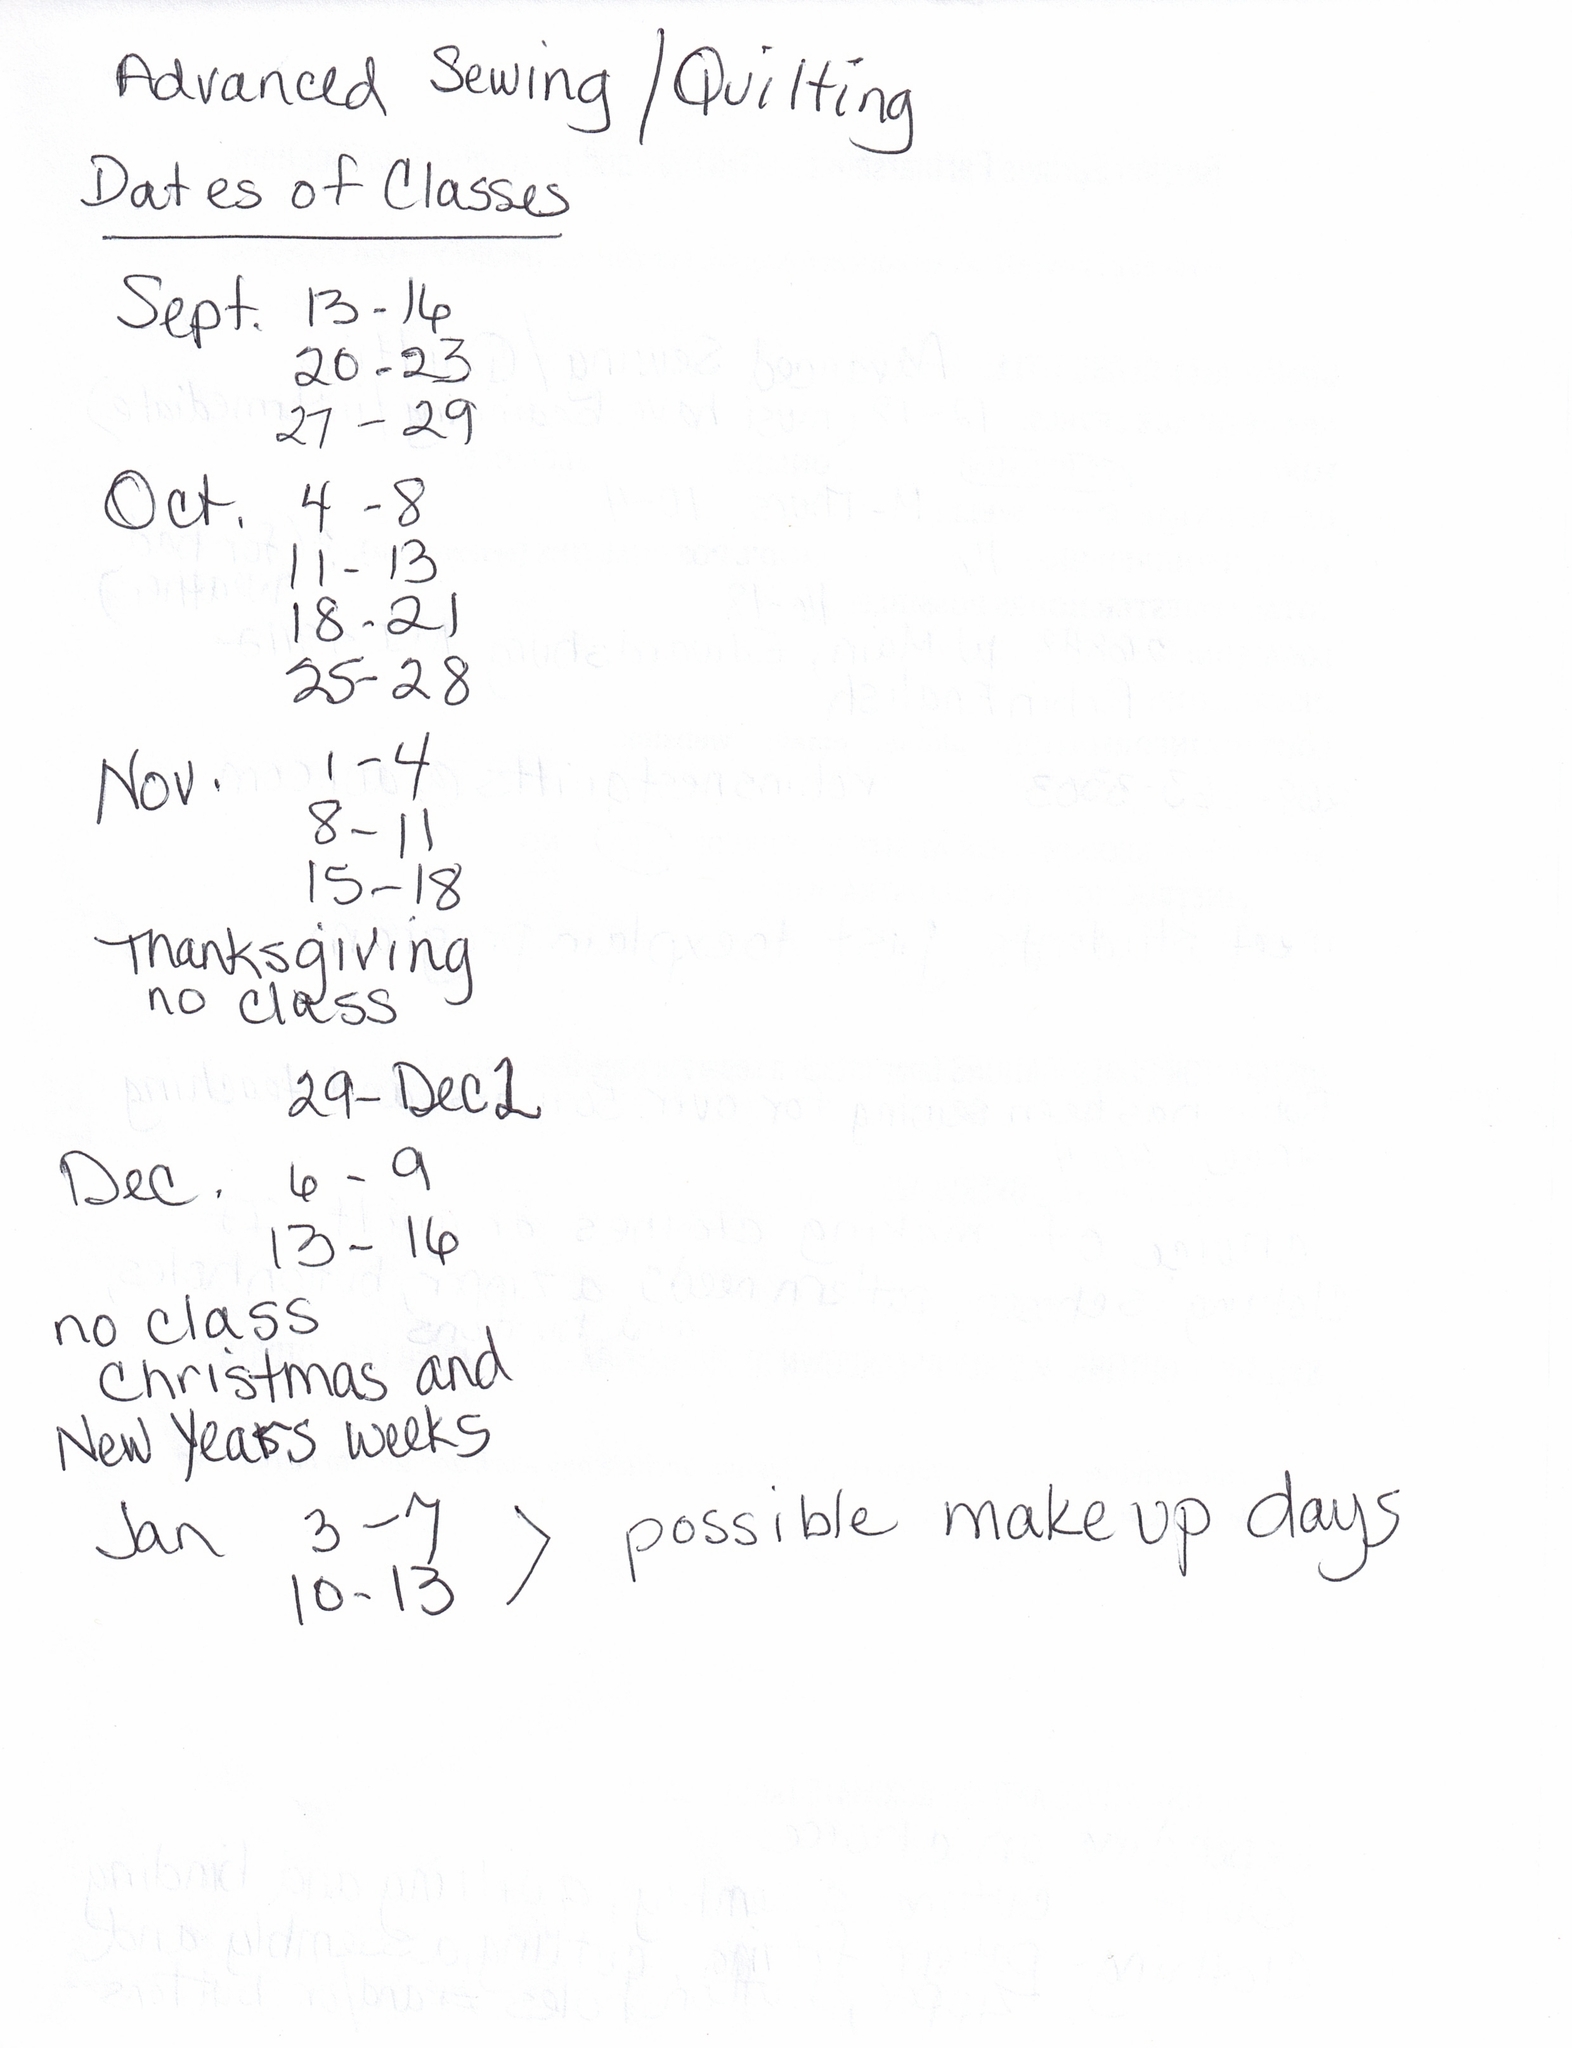 Advanced Sewing / Quilting
Dates of Classes
Sept. 13-16
20-23
27-29
Oct. 4-8
11-13
18-21
25-28
Nov. 1-4
8-11
15-18
Thanksgiving
no class
29-Dec 2
Dec. 6-9
13-16
no class
Christmas and
New Years weeks
Jan 3-7 > possible make up days
10-13